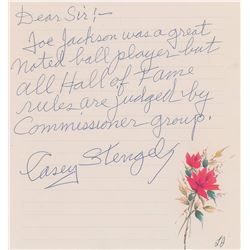 Dear Sir!—
Joe Jackson was a great
noted ball player but
all Hall of Fame
rules are judged by
Commissioner group.
Casey Stengel